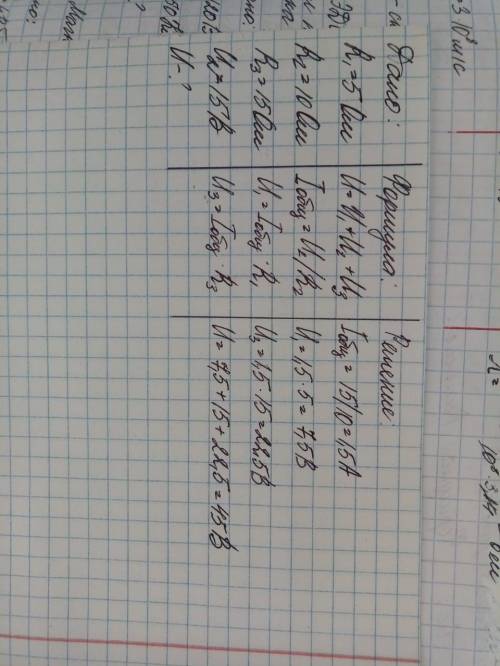 Дано:
R₁ = 5 Ом
R₂ = 10 Ом
R₃ = 15 Ом
U₂ = 15 В
U - ?
Формула:
U = U₁ + U₂ + U₃
Iобщ = U₂/R₂
U₁ = Iобщ · R₁
U₃ = Iобщ · R₃
Решение:
Iобщ = 15/10 = 1,5 А
U₁ = 1,5 · 5 = 7,5 В
U₃ = 1,5 · 15 = 22,5 В
U = 7,5 + 15 + 22,5 = 45 В